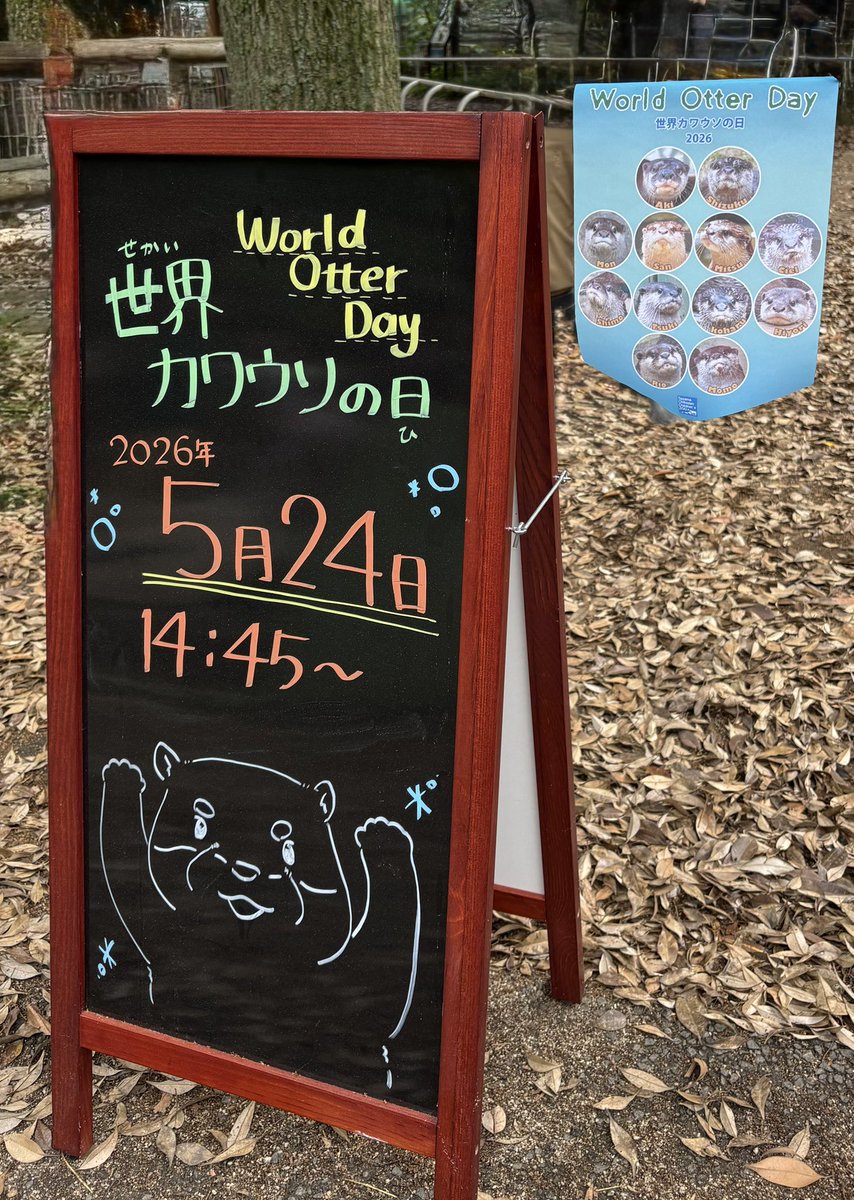 World
Otter
Day
せかい
世界
カワウソの日
ひ
2026年
5月24日
14:45～
World Otter Day
世界カワウソの日
2026
Aki
Shizuku
Mon
San
Mitsu
Ciel
Shima
Tsuki
Koharu
Hiyori
Rio
Momo